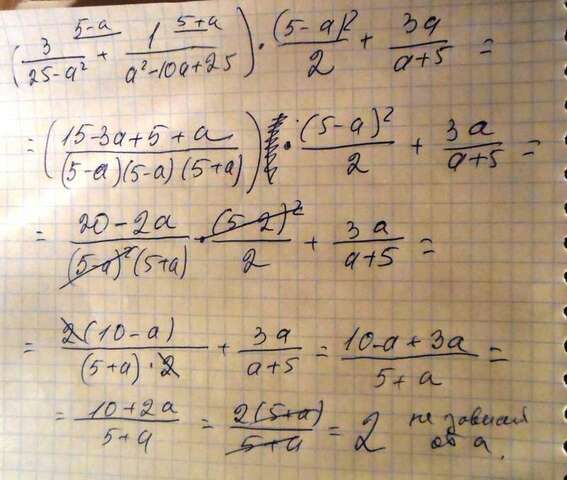 (3/(25-a²) ^(5-a) + 1/(a²-10a+25) ^(5+a)) · (5-a)²/2 + 3a/(a+5) =
= ((15-3a+5+a)/((5-a)(5-a)(5+a))) · (5-a)²/2 + 3a/(a+5) =
= (20-2a)/((5-a)²(5+a)) · (5-a)²/2 + 3a/(a+5) =
= 2(10-a)/((5+a)·2) + 3a/(a+5) = (10-a+3a)/(5+a) =
= (10+2a)/(5+a) = 2(5+a)/(5+a) = 2 не зависит
от a.